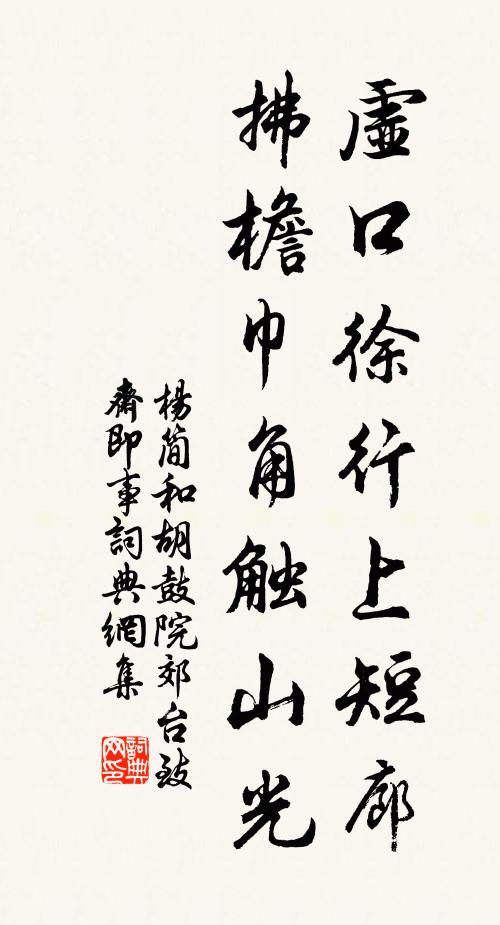 虚口徐行上短廊
拂檐巾角触山光
楊簡和胡鼓院郊台致
齋即事詞典網集
詞典網印